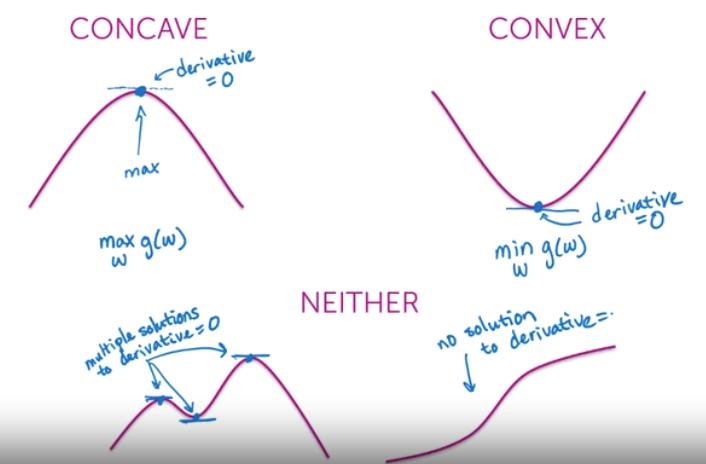 CONCAVE
derivative
= 0
max
max g(w)
w
CONVEX
derivative
=0
min g(w)
w
NEITHER
multiple solutions
to derivative = 0
no solution
to derivative =